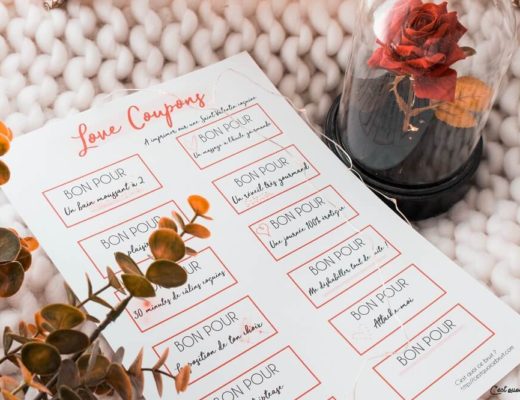 Love Coupons
A imprimer sur une Saint Valentin coquine
BON POUR
Un massage à l'huile gourmande
BON POUR
Un bain moussant à 2
BON POUR
Un réveil très gourmand
BON POUR
plaisir
BON POUR
Une journée 100% érotique
BON POUR
30 minutes de câlins coquins
BON POUR
Me déshabiller tout de suite
BON POUR
position de ton choix
BON POUR
Attach e moi
BON POUR
striptease
BON POUR
C'est quoi ce bruit ?
C'est quoi